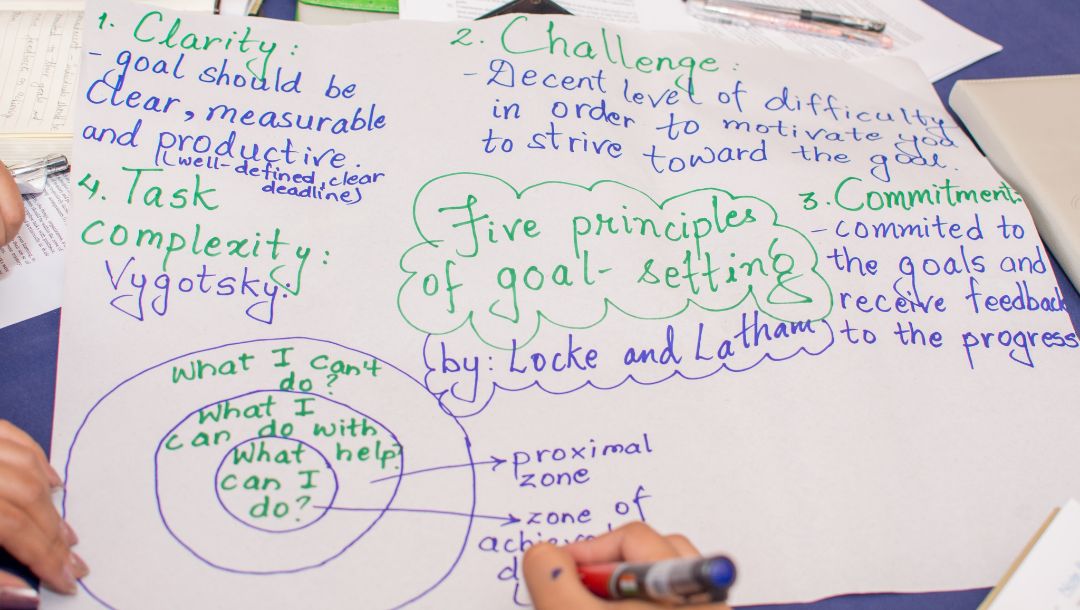 1. Clarity:
- goal should be
clear, measurable
and productive.
(well-defined, clear
deadline)
2. Challenge:
- Decent level of difficulty
in order to motivate you
to strive toward the goal.
3. Commitment:
- commited to
the goals and
receive feedback
to the progress
4. Task
complexity:
Vygotsky:
Five principles
of goal-setting
(by: Locke and Latham)
What I can't
do?
What I
can do with
help?
What
can I
do?
proximal
zone
zone of